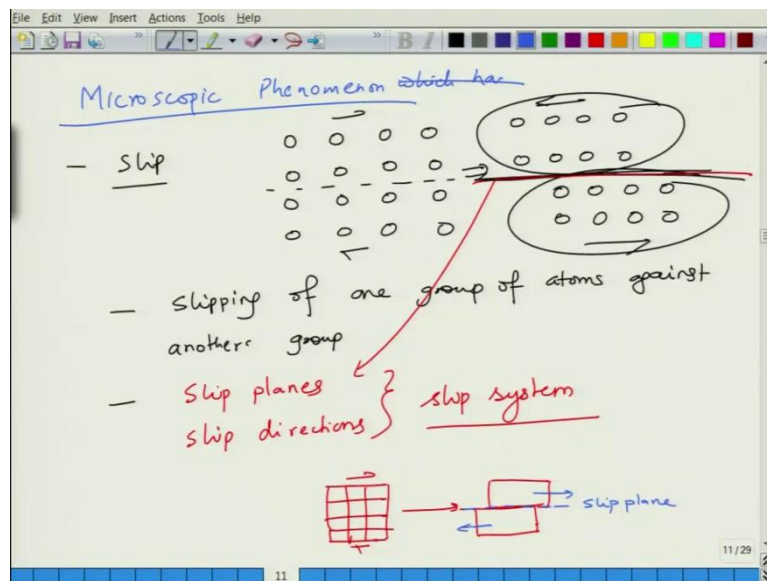 File Edit View Insert Actions Tools Help
B I
Microscopic Phenomenon which has
— Slip
— slipping of one group of atoms against
another group
— Slip planes
slip directions } slip system
slip plane
11 / 29
11